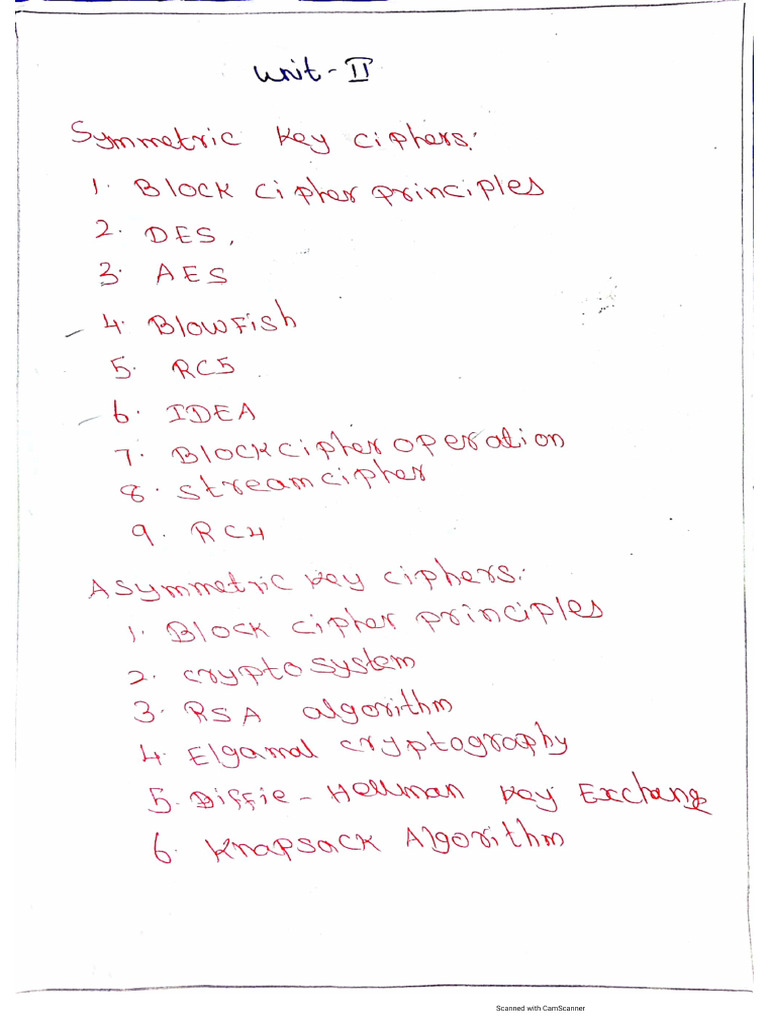 Unit - II
Symmetric Key Ciphers:
1. Block Cipher principles
2. DES,
3. AES
4. Blowfish
5. RC5
6. IDEA
7. Block cipher operation
8. stream cipher
9. RC4
Asymmetric key ciphers:
1. Block cipher principles
2. cryptosystem
3. RSA algorithm
4. Elgamal cryptography
5. Diffie - Hellman Key Exchang
6. Knapsack Algorithm
Scanned with CamScanner